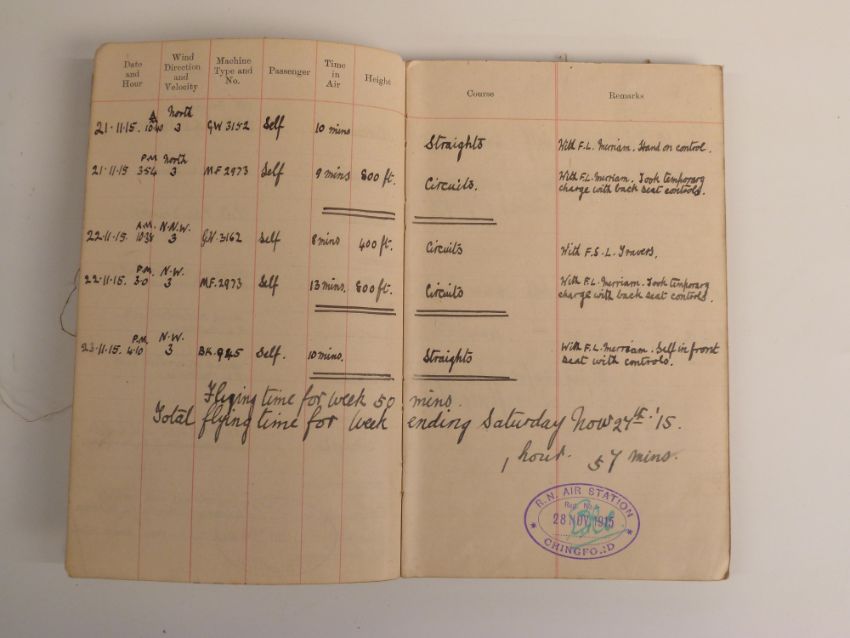 Date and Hour Wind Direction and Velocity Machine Type and No. Passenger Time in Air Height Course Remarks
21·11·15. A 10·40 North 3 GW 3152 Self 10 mins Straights With F.L. Merriam. Hand on control.
21·11·15 P.M. 3·54 North 3 M.F. 2973 Self 9 mins 800 ft. Circuits. With F.L. Merriam. Took temporary
charge with back seat controls.
22·11·15. A.M. 10·38 N.N.W. 3 GW 3162 Self 8 mins 400 ft. Circuits With F.S.L. Travers.
22·11·15. P.M. 3·0 N.W. 3 M.F. 2973 Self 13 mins. 800 ft. Circuits With F.L. Merriam. Took temporary
charge with back seat controls.
23·11·15. P.M. 4·10 N.W. 3 B.K. 945 Self. 10 mins. Straights With F.L. Merriam. Self in front
seat with controls.
Flying time for week 50 mins.
Total flying time for week ending Saturday Nov 27th '15.
1 hour. 57 mins.
R.N. AIR STATION
28 NOV 1915
CHINGFORD